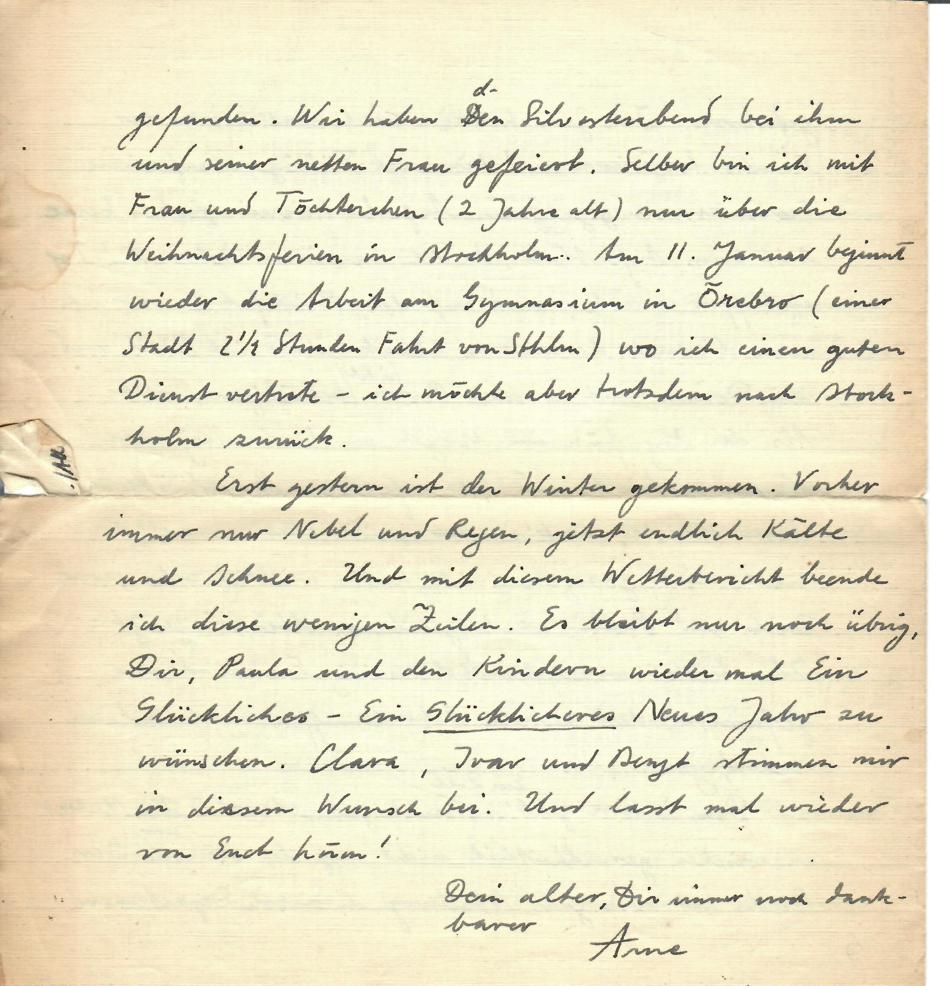 gefunden. Wir haben den Silvesterabend bei ihm
und seiner netten Frau gefeiert. Selber bin ich mit
Frau und Töchterchen (2 Jahre alt) nur über die
Weihnachtsferien in Stockholm. Am 11. Januar beginnt
wieder die Arbeit am Gymnasium in Örebro (einer
Stadt 2 1/2 Stunden Fahrt von Sthlm) wo ich einen guten
Dienst vertrete - ich möchte aber trotsdem nach Stock-
holm zurück.
Erst gestern ist der Winter gekommen. Vorher
immer nur Nebel und Regen, jetzt endlich Kälte
und Schnee. Und mit diesem Wetterbericht beende
ich diese wenigen Zeilen. Es bleibt nur noch übrig,
Dir, Paula und den Kindern wieder mal Ein
Glückliches - Ein Glücklicheres Neues Jahr zu
wünschen. Clara, Ivar und Bengt stimmen mir
in diesem Wunsch bei. Und lasst mal wieder
von Euch hören!
Dein alter, Dir immer noch dank-
barer
Arne